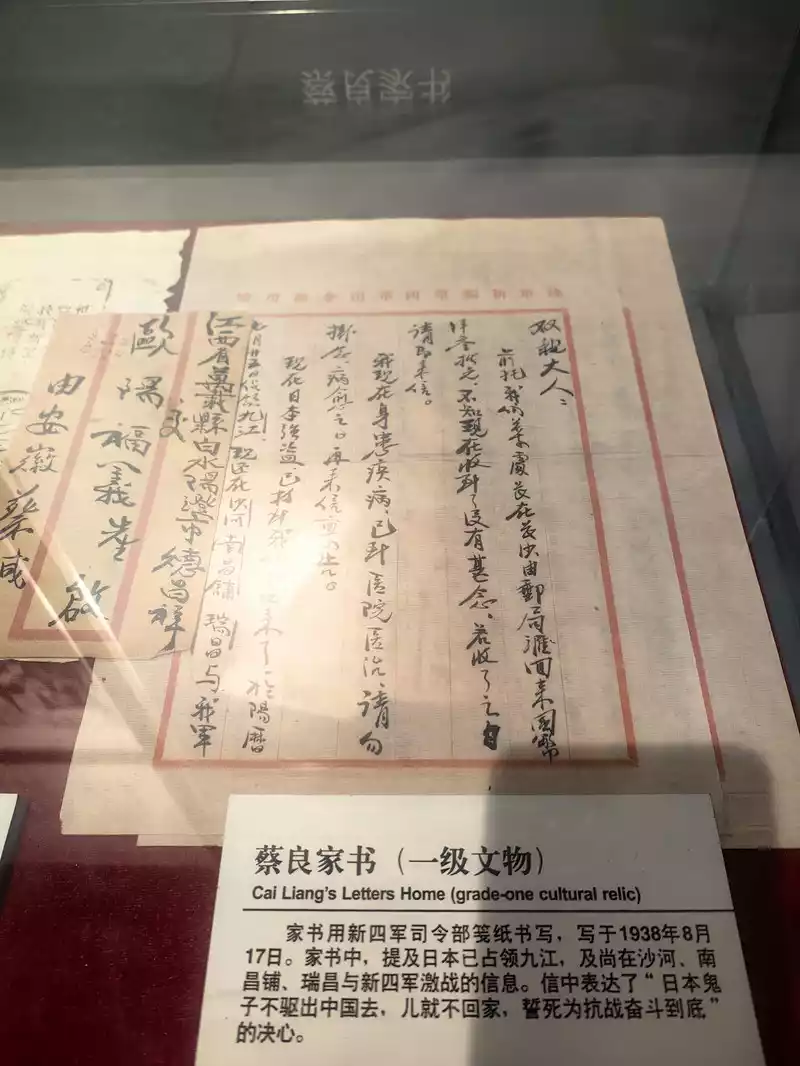 双親大人：
前托我们葉處長在長沙由郵局滙回来國幣
洋叁拾元，不知現在收到了没有甚念，若收了之
请即来信。
我现在身患疾病，已到医院医治，请勿
掛念，病愈之日再来信
现在日本強盗已打到我 来了，於陽曆
七月廿五日 九江，现还在沙河南昌鋪瑞昌与我軍
江西省萬載縣白水陽樂市德昌祥
交
歐陽福義 啟
由安徽蔡咸
蔡良家书（一级文物）
Cai Liang's Letters Home (grade-one cultural relic)
家书用新四军司令部笺纸书写，写于1938年8月
17日。家书中，提及日本已占领九江，及尚在沙河、南
昌铺、瑞昌与新四军激战的信息。信中表达了“日本鬼
子不驱出中国去，儿就不回家，誓死为抗战奋斗到底”
的决心。